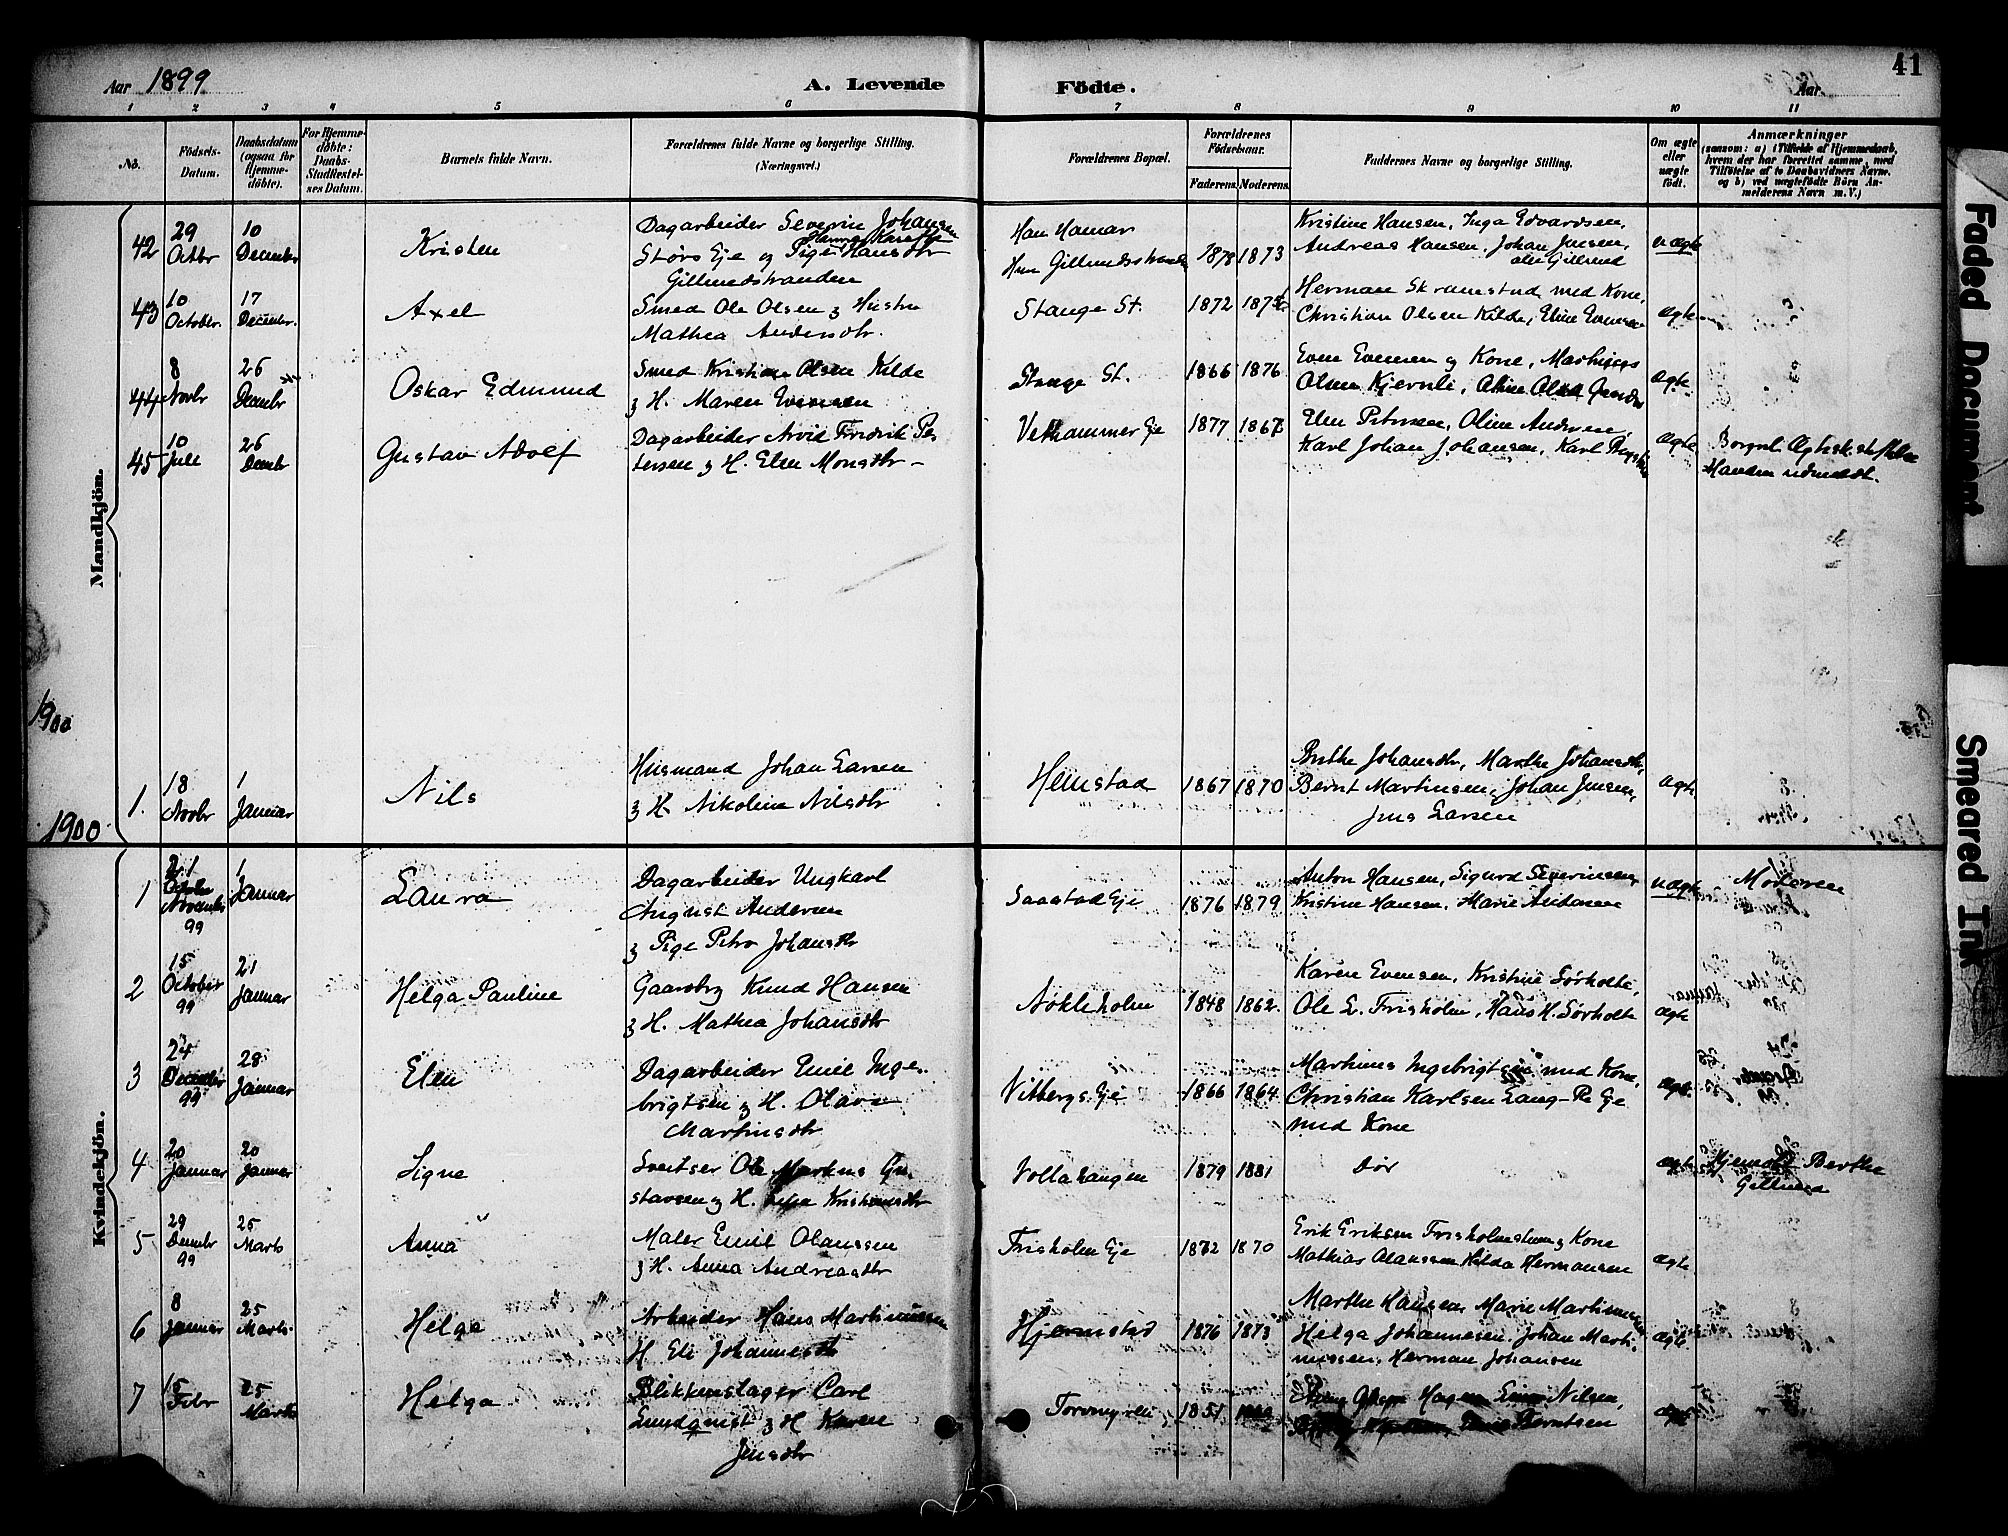 41
Aar 1899
A. Levende Födte.
Aar
1 2 3 4 5 6 7 8 9 10 11
No.
Födsels-Datum.
Daabsdatum (ogsaa for Hjemme-döbte).
For Hjemme-döbte: Daabs-Stadfæstel-ses Datum.
Barnets fulde Navn.
Forældrenes fulde Navne og borgerlige Stilling. (Næringsvei.)
Forældrenes Bopæl.
Forældrenes Födselsaar.
Faderens. Moderens.
Faddernes Navne og borgerlige Stilling.
Om ægte eller uægte födt.
Anmærkninger
(saasom: a) i Tilfælde af Hjemmedaab, hvem der har forrettet samme, med Tilföielse af to Daabsvidners Navne. og b) ved uægtefödte Börn An-melderens Navn m. V.)
Mandkjön.
42 29 Octbr 10 December Kristen
Dagarbeider Severin Johansen
Störs Eje og Pige Hansdtr
Gillundstranden
Han Hamar
Hun Gillundsstranden
1878 1873
Kristine Hansen, Inga Edvardsen,
Andreas Hansen, Johan Jensen,
Gillund
uægte
43 10 October 17 December Axel
Smed Ole Olsen & Hustru
Mathea Andersdtr.
Stange St. 1872
Herman Skramstad med Kone,
Christian Olsen Kilde, Eline Evensen
ægte
44 8 Novbr 26 Decembr Oskar Edmund
Smed Kristian Olsen Kilde
& H. Maren Evensen
Stange St. 1866 1876
Even Evensen & Kone, Marthinus
Olsen Kjernli,
ægte
45 10 Juli 26 Decembr Gustav Adolf
Dagarbeider Arvid Fredrik Pe
tersen & H. Elen Monsdtr
Vethammer Eje 1877
Elen Petersen, Oline Andersen,
Karl Johan Johansen, Karl
ægte
Borgerl. Ægteskab
Manden udmeldt.
1900
1. 18 Novbr 1 Januar Nils
Husmand Johan Larsen
& H. Nikoline Nilsdtr
Hemstad 1867 1870
Berthe Johansdtr, Marthe Johansdtr,
Bernt Martinsen, Johan Jensen,
Jens Larsen
ægte
1900
Kvindekjön.
1 21 November 99 1 Januar Laura
Dagarbeider Ungkarl
August Andersen
& Pige Petra Johansdtr
Saastad Eje 1876 1879
Anton Hansen, Sigurd Severinsen,
Kristine Hansen, Marie Andersen
uægte Moderen
2 15 October 99 21 Januar Helga Pauline
Gaardbr Knud Hansen
& H. Mathea Johansdtr
Nokleholm 1848 1862.
Karen Evensen, Kristine Sörholte,
Ole L. Frisholm, Hans H. Sörholte
ægte
3 24 December 99 28 Januar Elen
Dagarbeider Emil Inge
brigtsen & H. Olava
Martinsdtr
Vitbergs Eje 1866 1864
Marthinus Ingebrigtsen med Kone,
Christian Karlsen Lang-Re Eje
med Kone
ægte
4 20 Januar 20 Januar Signe
Sveitser Ole Markus Gu
stavsen & H. Kristiansdtr
Vollahaugen 1879 1881
död
ægte Hjemdöbt Berthe
Gillund
5 29 Decembr 99 25 Marts Anna
Maler Emil Olaussen
& H. Anna Andreasdtr
Frisholm Eje 1872 1870
Erik Eriksen Frisholmstuen & Kone
Mathias Olaussen Hilda Hermansen
ægte
6 8 Januar 25 Marts Helga
Arbeider Hans Martinussen
H. Eli Johannesdtr
Hjermstad 1876 1873
Marthe Hansen, Marie Martinussen
Helga Johannesen, Johan Marti
nussen, Herman Johansen
ægte
7 15 Febr 25 Marts Helga
Blikkenslager Carl
Lundquist & H. Karen
Jensdtr
Torvmyren 1851
Nilsen,
Berntsen
ægte
Faded Document
Smeared Ink